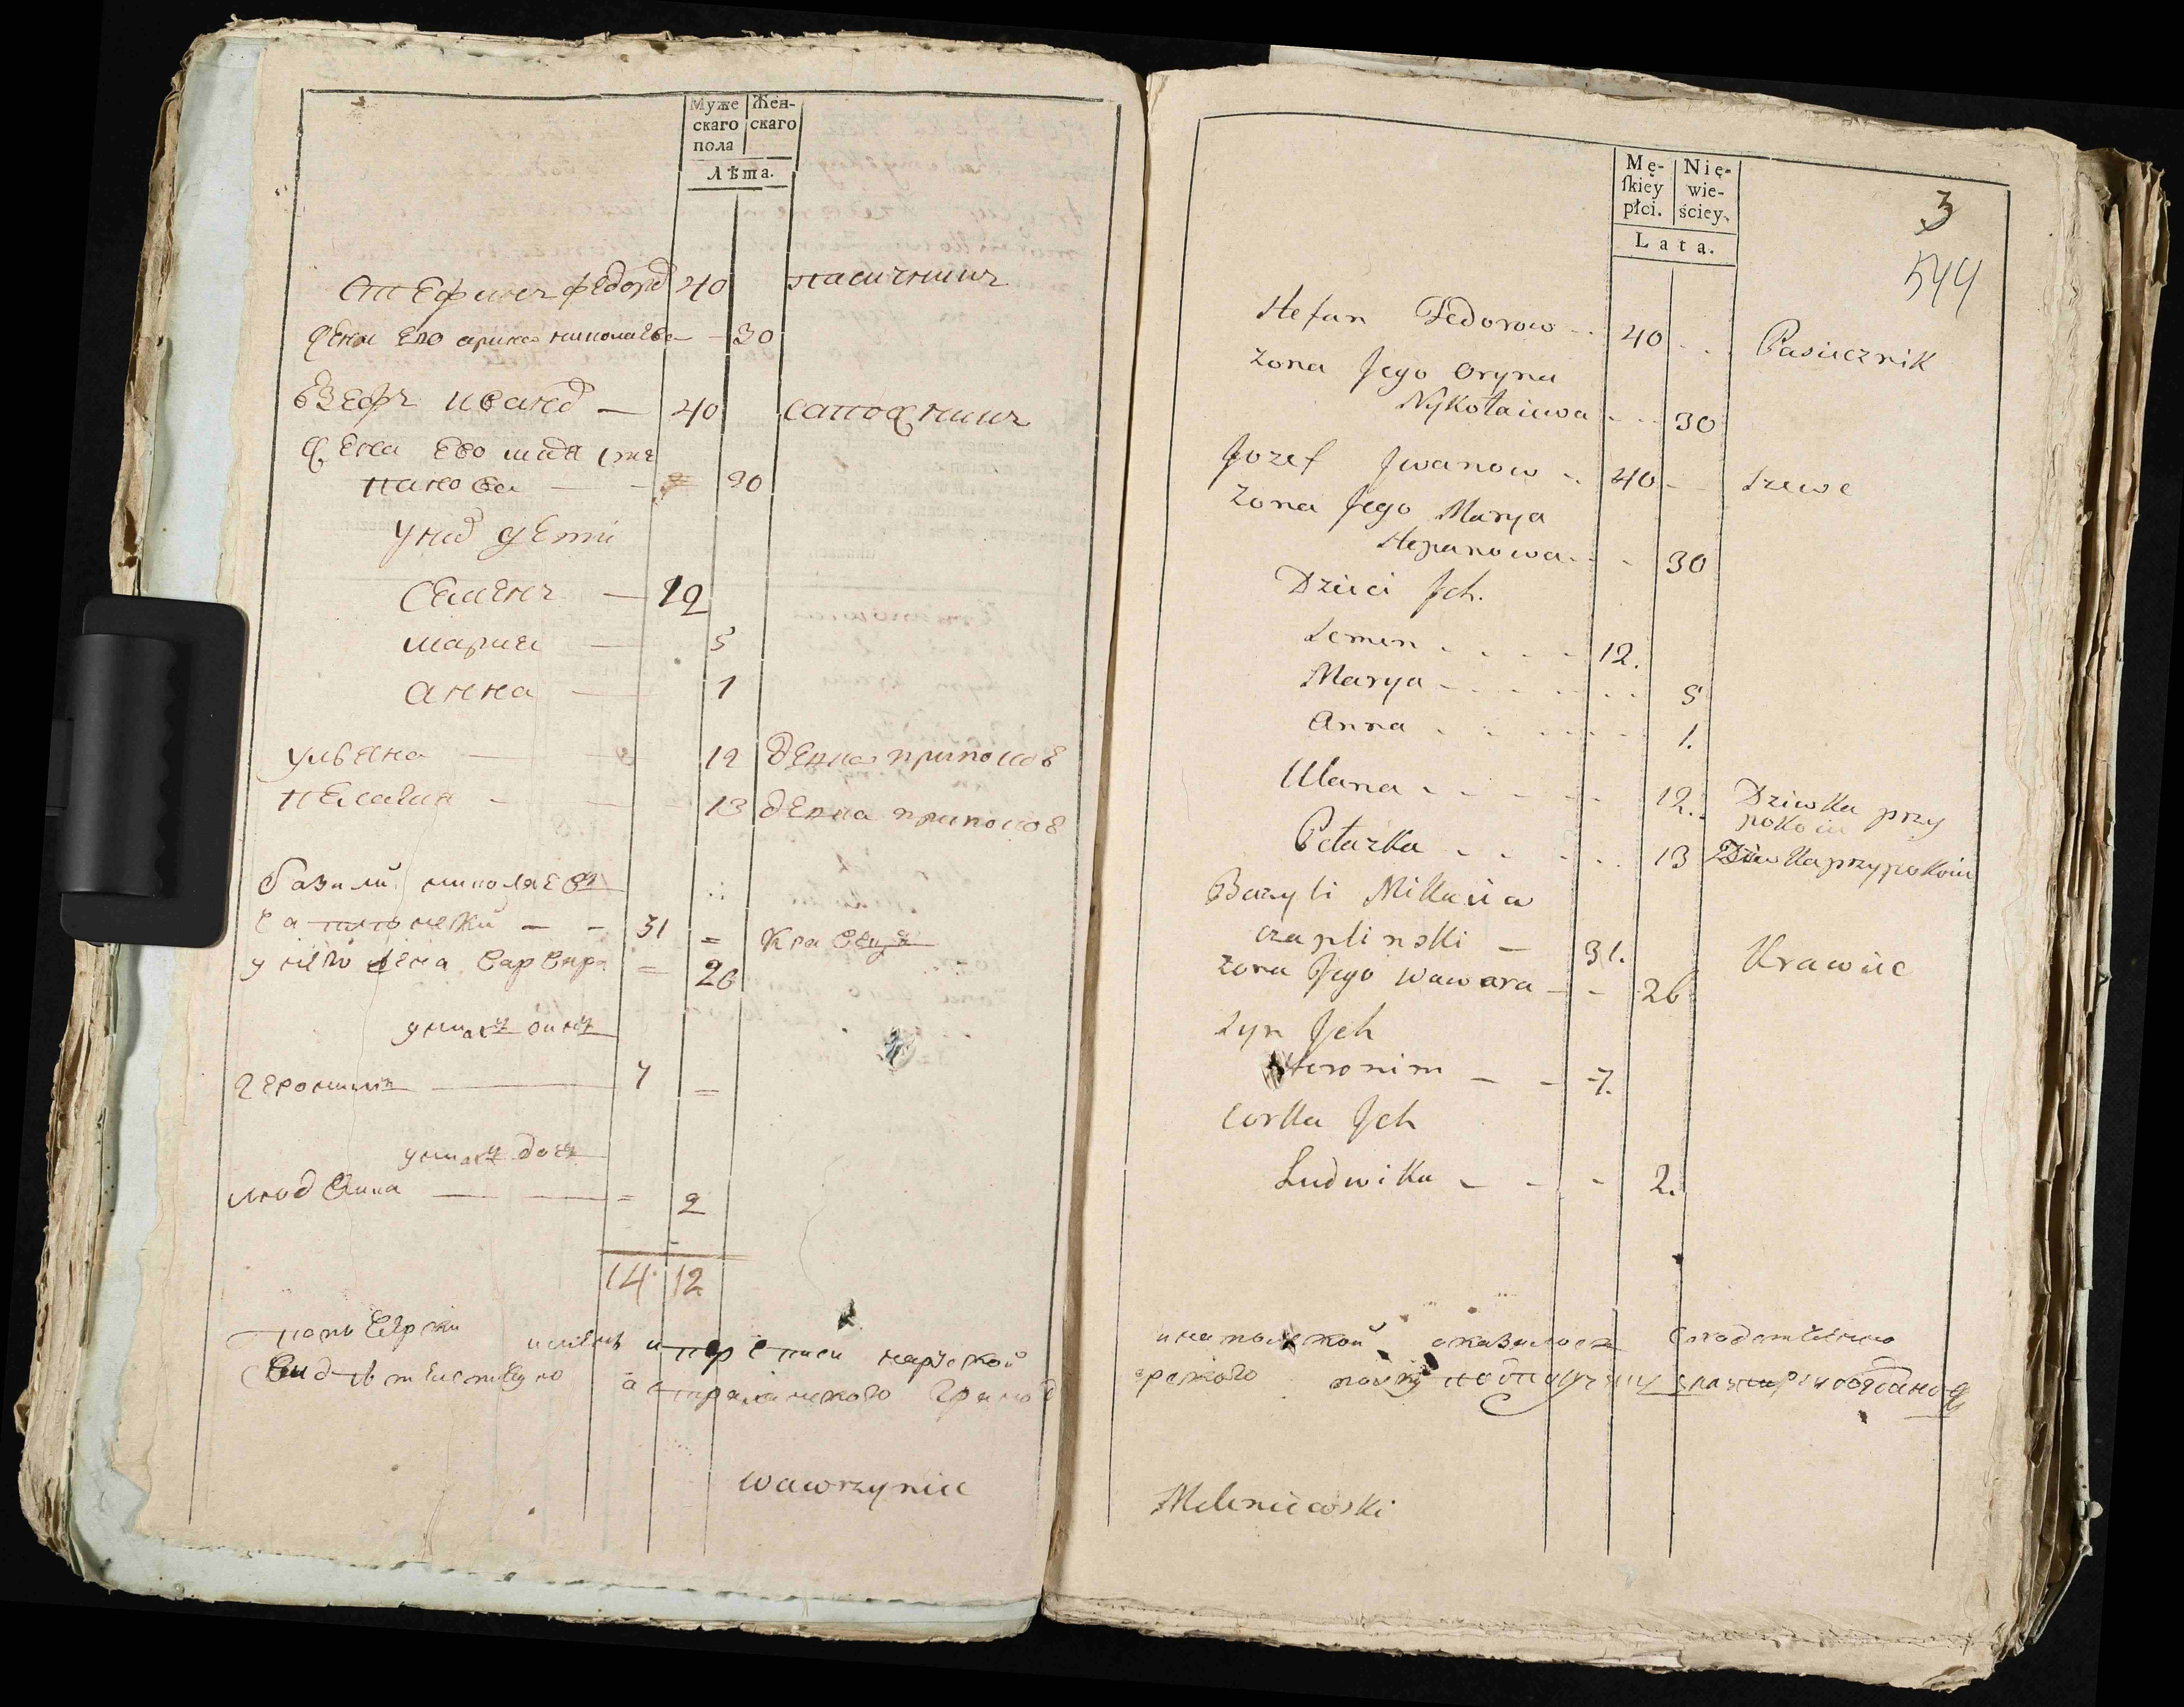 Муже Жен-
скаго скаго
пола
Лѣта.
Стефанъ Федоровъ 40 пасичникъ
жена Его арина николаева - 30
Езефъ Иванов — 40 сапожникъ
жена Ево мария сте
панова — - 30
у них дети
Семенъ — 12
мария — 5
анна — 1
ульяна — 12 девка припокое
пелагия - 13 девка припокое
базилий николаевъ
чаплинский - - 31 = кравецъ
у него жена варвара = 26
у нихъ синъ
геронимъ — 7 =
у нихъ дочъ
людвика — — = 2
14 12
Mę- Nię-
ſkiey wie-
płci. ściey.
Lata.
3
544
Stefan Fedorow - . 40 - . Pasiecznik
Zona Jego Oryna
Nykołaiewa - . . 30
Jozef Jwanow - . 40 - Szewc
Zona Jego Marya
Stepanowa . - - 30
Dzieci Jch.
Semen . . . . 12.
Marya - . . . . . 5
Anna . . . . . 1.
Ulana . - . - . 12. Dziwka przy
pokoiu
Pełażka . . . . . 13 Dziwka przy pokoiu
Bazyli Mikołaia
Czaplinski — 31. Krawiec
Zona Jego Wawara - - 26
Syn Jch
Heronim - - 7.
Corka Jch
Ludwika - - - 2.
и на польской оказалося
Wawrzyniec
Meleniewski